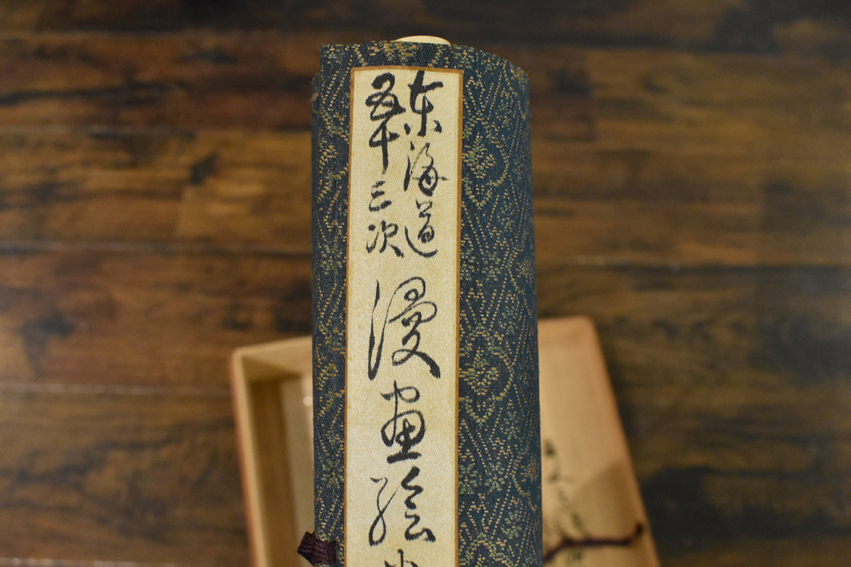 東海道
五十三次
漫画絵